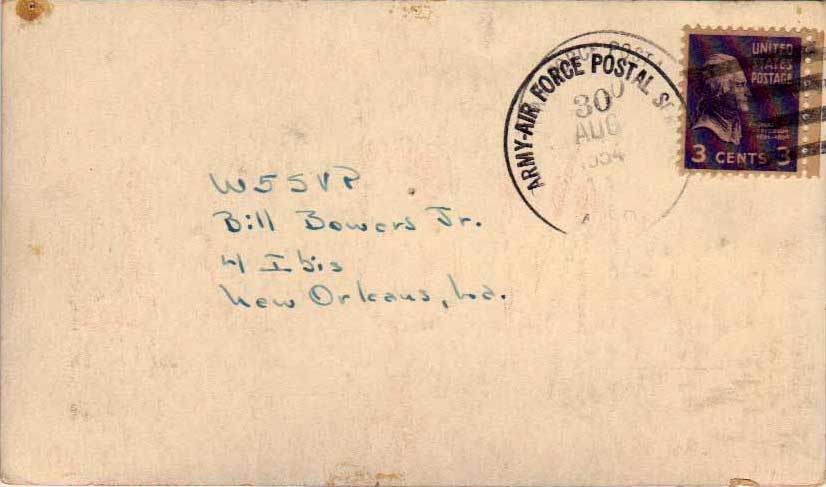 ARMY-AIR FORCE POSTAL
30
AUG
1954
UNITED
STATES
POSTAGE
3 CENTS 3
W5SVP
Bill Bowers Jr.
4 Ibis
New Orleans, La.